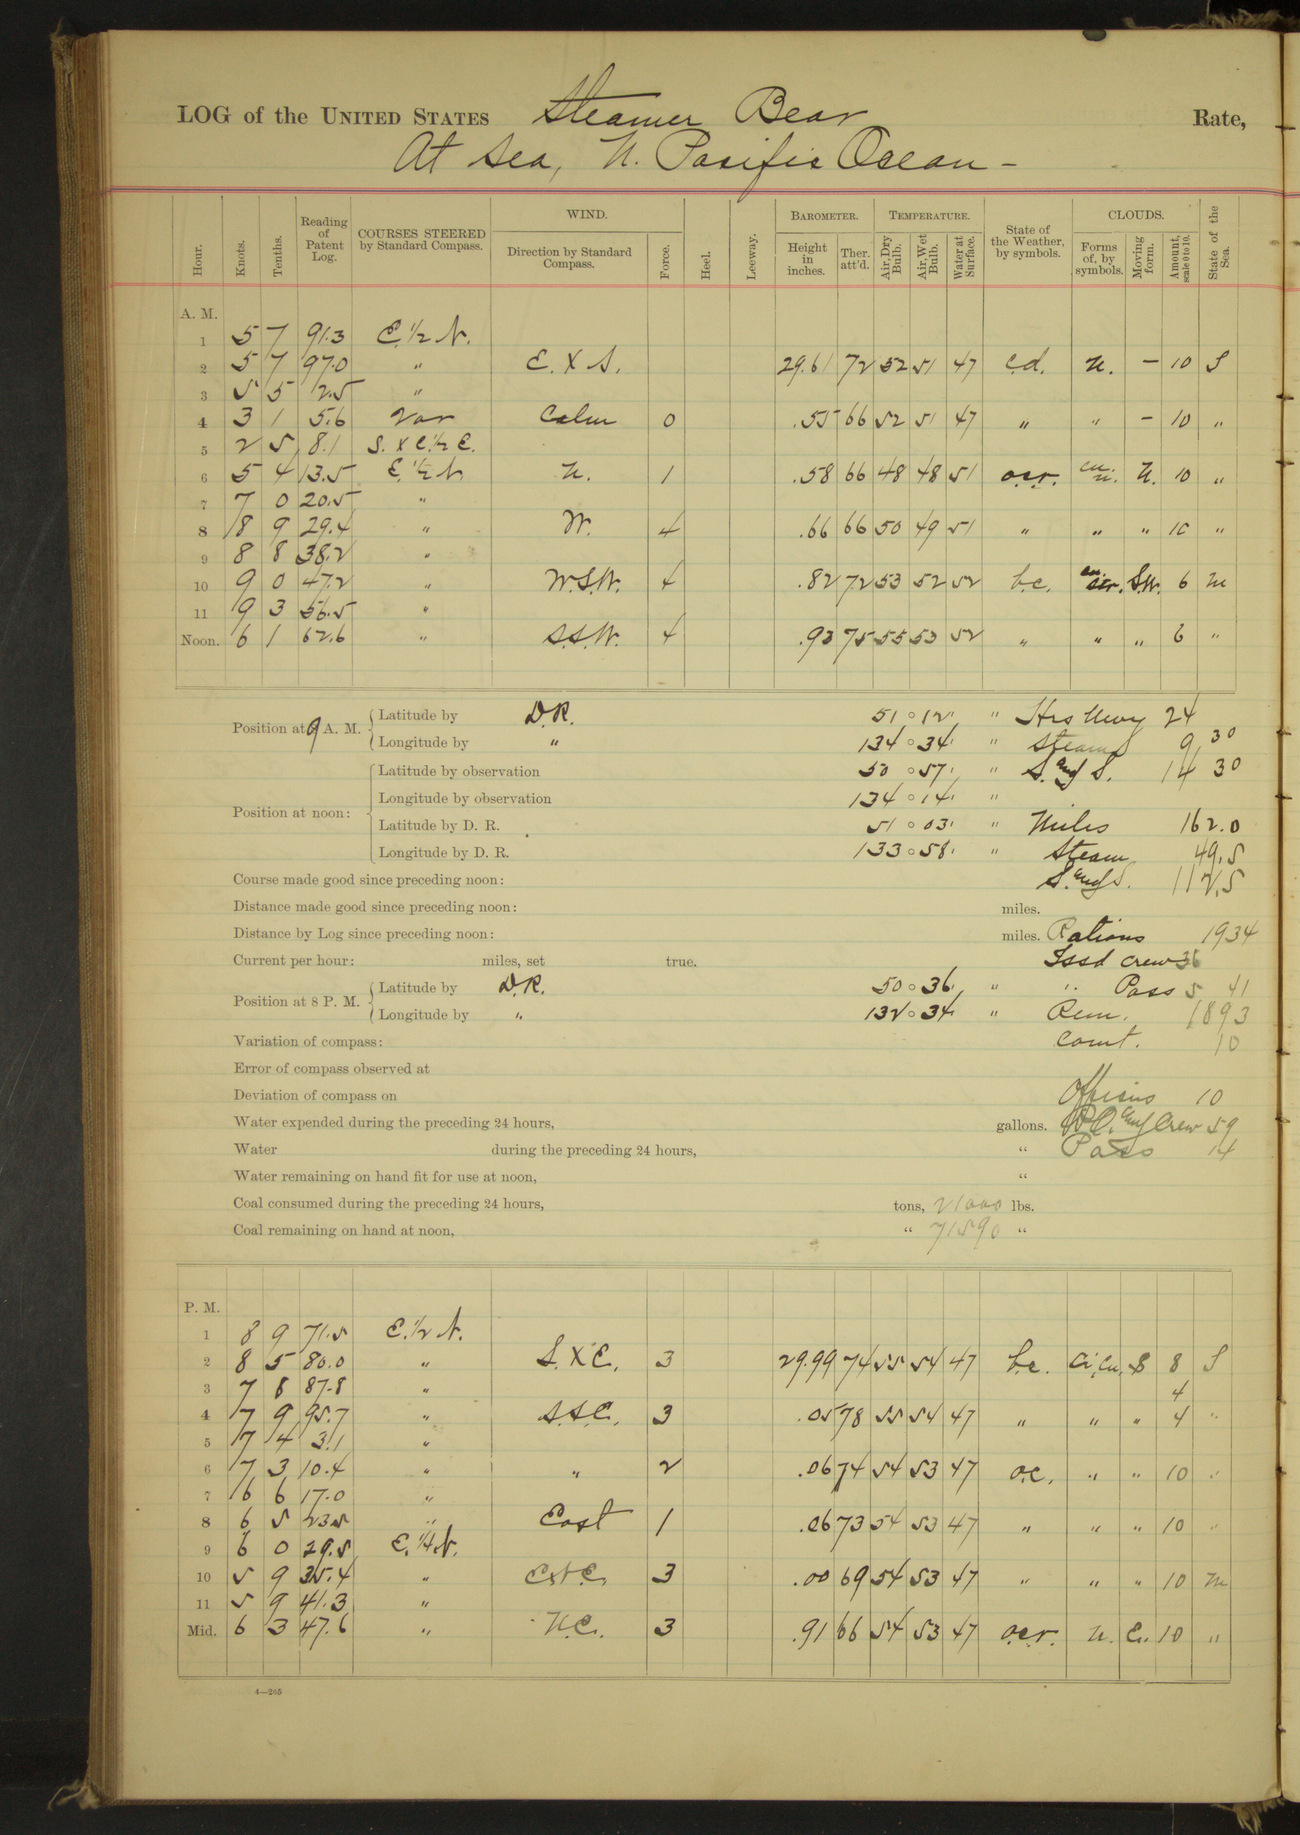 LOG of the UNITED STATES Steamer Bear Rate,
At Sea, N. Pacific Ocean -
Hour. Knots. Tenths. Reading of Patent Log. COURSES STEERED by Standard Compass. WIND. Direction by Standard Compass. Force. Heel. Leeway. BAROMETER. Height in inches. Ther. att'd. TEMPERATURE. Air, Dry Bulb. Air, Wet Bulb. Water at Surface. State of the Weather, by symbols. CLOUDS. Forms of, by symbols. Moving form. Amount, scale 0 to 10. State of the Sea.
A. M.
1 5 7 91.3 E. 1/2 N.
2 5 7 97.0 " E. X S. 29.61 72 52 51 47 c.d. N. - 10 S
3 5 5 2.5 "
4 3 1 5.6 Var Calm 0 .55 66 52 51 47 " " - 10 "
5 2 5 8.1 S. X E. 1/2 E.
6 5 4 13.5 E. 1/2 N N. 1 .58 66 48 48 51 o.c.r. cu. n. N. 10 "
7 7 0 20.5 "
8 8 9 29.4 " W. 4 .66 66 50 49 51 " " " 10 "
9 8 8 38.2 "
10 9 0 47.2 " W.S.W. 4 .82 72 53 52 52 b.c. cu. S.W. 6 M
11 9 3 56.5 "
Noon. 6 1 62.6 " S.S.W. 4 .93 75 55 53 52 " " " 6 "
Position at 9 A. M. Latitude by D.R. 51 ° 12 ' " Hrs Uwy 24
Longitude by " 134 ° 34 ' " Steam 9 30
Position at noon: Latitude by observation 50 ° 57 ' " S. and S. 14 30
Longitude by observation 134 ° 14 ' "
Latitude by D. R. 51 ° 03 ' " Miles 162.0
Longitude by D. R. 133 ° 58 ' " Steam 49.5
Course made good since preceding noon: S. and S. 112.5
Distance made good since preceding noon: miles.
Distance by Log since preceding noon: miles. Rations 1934
Current per hour: miles, set true. Issd crew 36
Position at 8 P. M. Latitude by D.R. 50 ° 36 ' " " Pass 5 41
Longitude by " 132 ° 34 ' " Rem. 1893
Variation of compass: Comt. 10
Error of compass observed at
Deviation of compass on Officers 10
Water expended during the preceding 24 hours, gallons. P.O. and Crew 59
Water during the preceding 24 hours, " Pass 14
Water remaining on hand fit for use at noon, "
Coal consumed during the preceding 24 hours, tons, 21000 lbs.
Coal remaining on hand at noon, " 71590 "
P. M.
1 8 9 71.5 E. 1/2 N.
2 8 5 80.0 " S. X E. 3 29.99 74 55 54 47 b.c. Ci. Cu. S 8 S
3 7 8 87.8 " 4
4 7 9 95.7 " S.S.E. 3 .05 78 55 54 47 " " " 4 "
5 7 4 3.1 "
6 7 3 10.4 " " 2 .06 74 54 53 47 o.c. " " 10 "
7 6 6 17.0 "
8 6 5 23.5 " East 1 .06 73 54 53 47 " " " 10 "
9 6 0 29.5 E. 1/4 N.
10 5 9 35.4 " E.N.E. 3 .00 69 54 53 47 " " " 10 M
11 5 9 41.3 "
Mid. 6 3 47.6 " N.E. 3 .91 66 54 53 47 o.c.r. N. E. 10 "
4—205